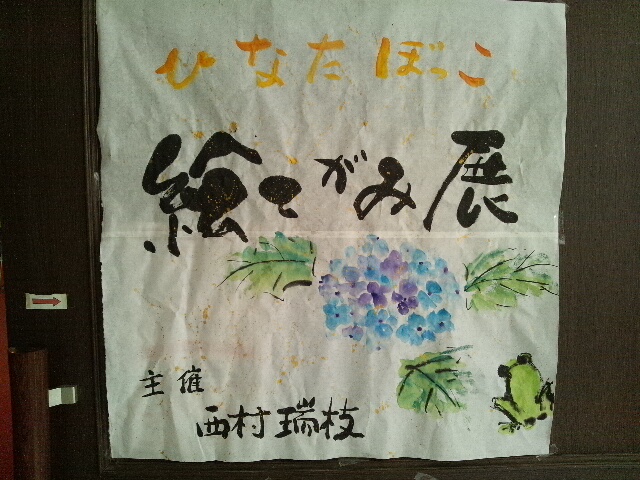 ひなたぼっこ
絵てがみ展
主催
西村瑞枝